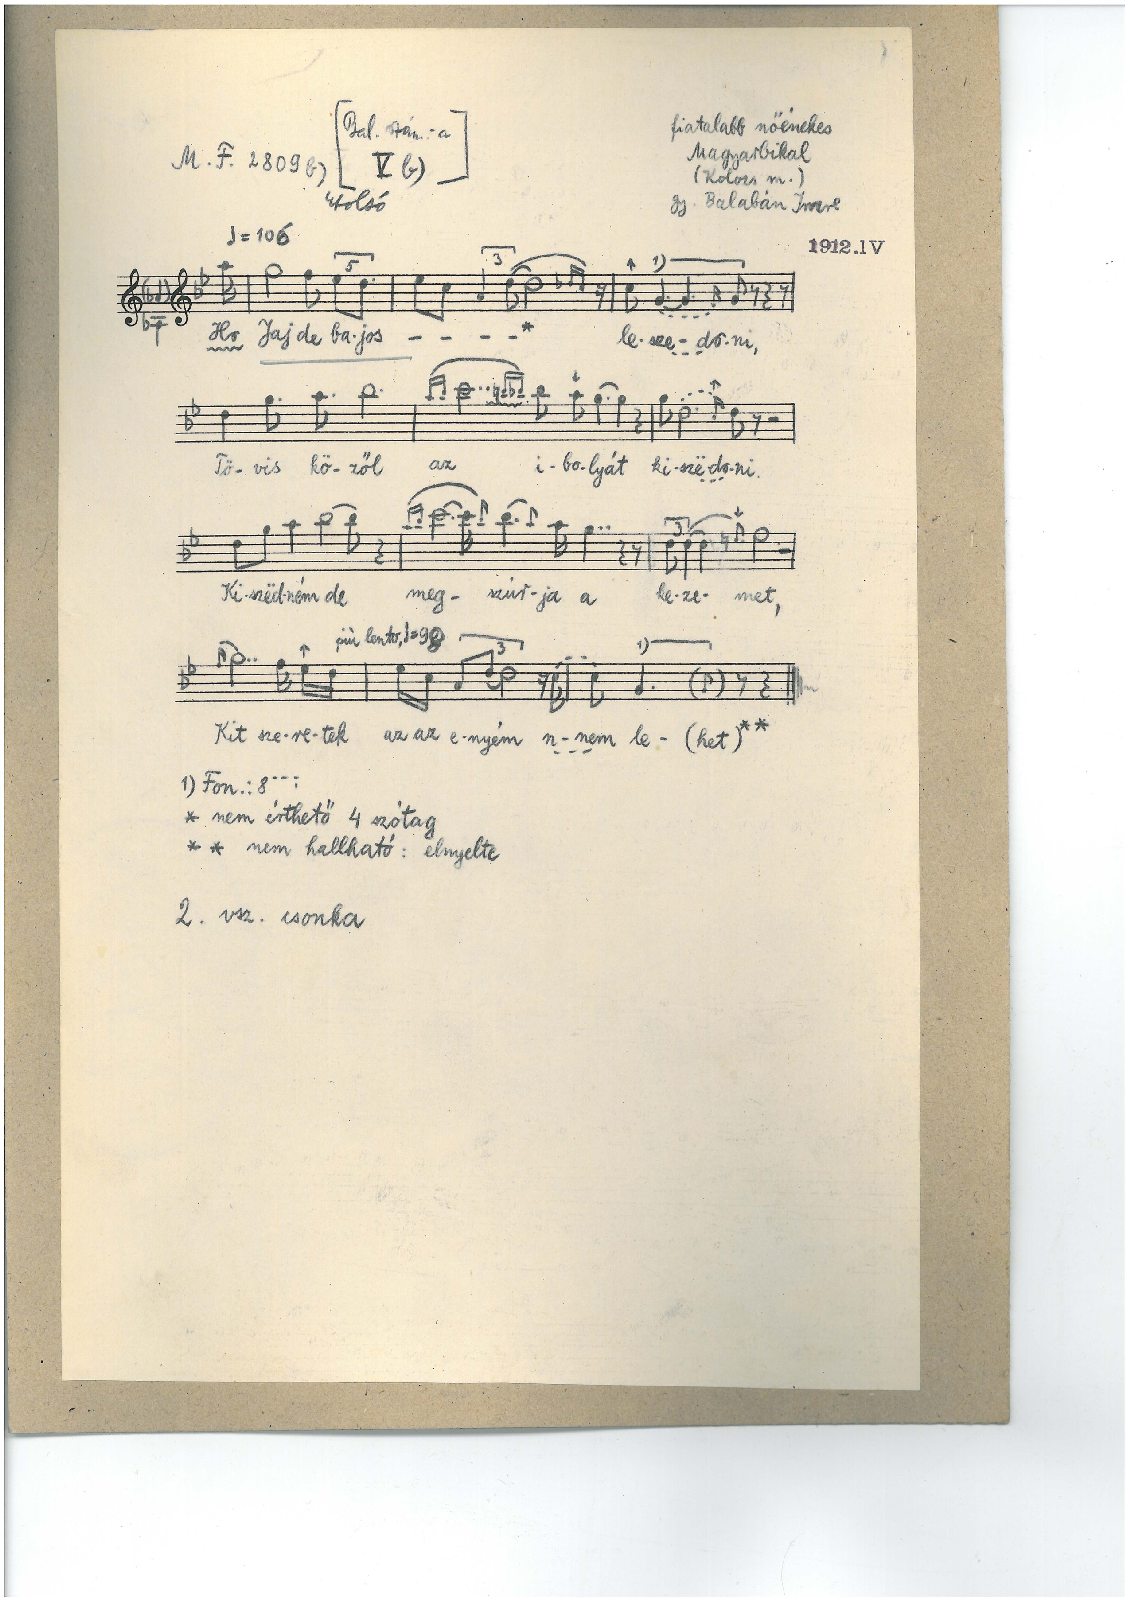 M. F. 2809 b)
[Bal. szám.-a
V b)]
utolsó
fiatalabb nőénekes
Magyarbikal
(Kolozs m.)
gy. Balabán Imre
1912.IV
♩= 106
5
3
1)
Ho Jaj de ba-jos - - - - * le-sze-dö-ni,
Tö-vis kö-zől az i-bo-lyát ki-szë-dö-ni.
3
Ki-szëd-ném de meg- szúr-ja a ke-ze- met,
più lento, ♩=98
3
1)
Kit sze-re-tek az az e-nyém n-nem le-(het)**
1) Fon.: 8---:
* nem érthető 4 szótag
** nem hallható: elnyelte
2. vsz. csonka